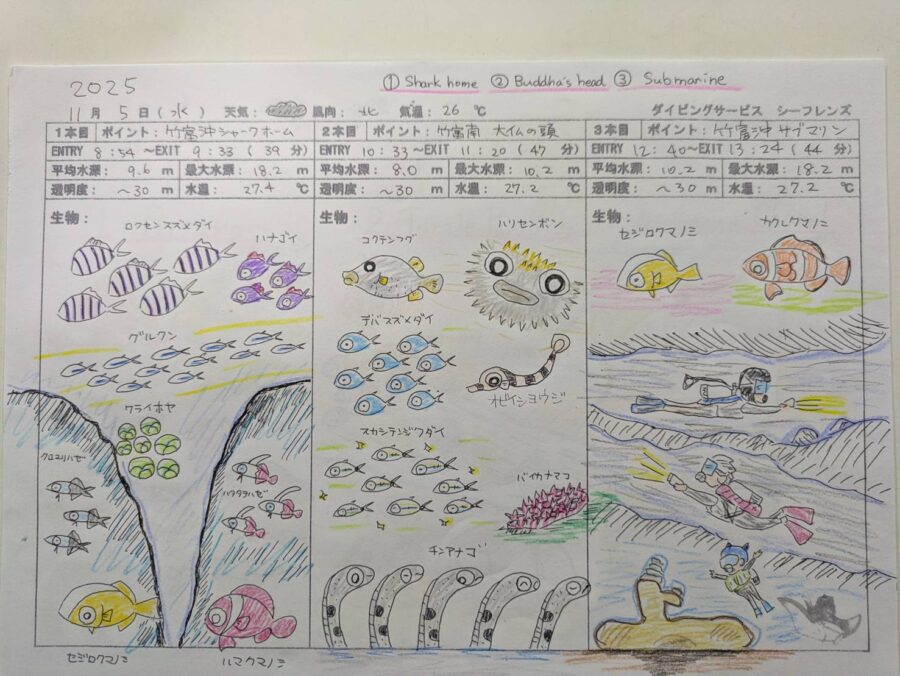 2025
① Shark home ② Buddha's head ③ Submarine
11月 5日(水) 天気: 風向: 北 気温: 26 ℃ ダイビングサービス シーフレンズ
1本目 ポイント: 竹富沖シャークホーム
ENTRY 8:54 ~EXIT 9:33 (39 分)
平均水深: 9.6 m 最大水深: 18.2 m
透明度: ~30 m 水温: 27.4 ℃
生物:
ロクセンスズメダイ
ハナゴイ
グルクン
クライホヤ
クロユリハゼ
ハタタテハゼ
セジロクマノミ
ハマクマノミ
2本目 ポイント: 竹富南 大仏の頭
ENTRY 10:33 ~EXIT 11:20 (47 分)
平均水深: 8.0 m 最大水深: 10.2 m
透明度: ~30 m 水温: 27.2 ℃
生物:
コクテンフグ
ハリセンボン
デバスズメダイ
オビイシヨウジ
スカシテンジクダイ
バイカナマコ
チンアナゴ
3本目 ポイント: 竹富沖 サブマリン
ENTRY 12:40 ~EXIT 13:24 (44 分)
平均水深: 10.2 m 最大水深: 18.2 m
透明度: ~30 m 水温: 27.2 ℃
生物:
セジロクマノミ
カクレクマノミ